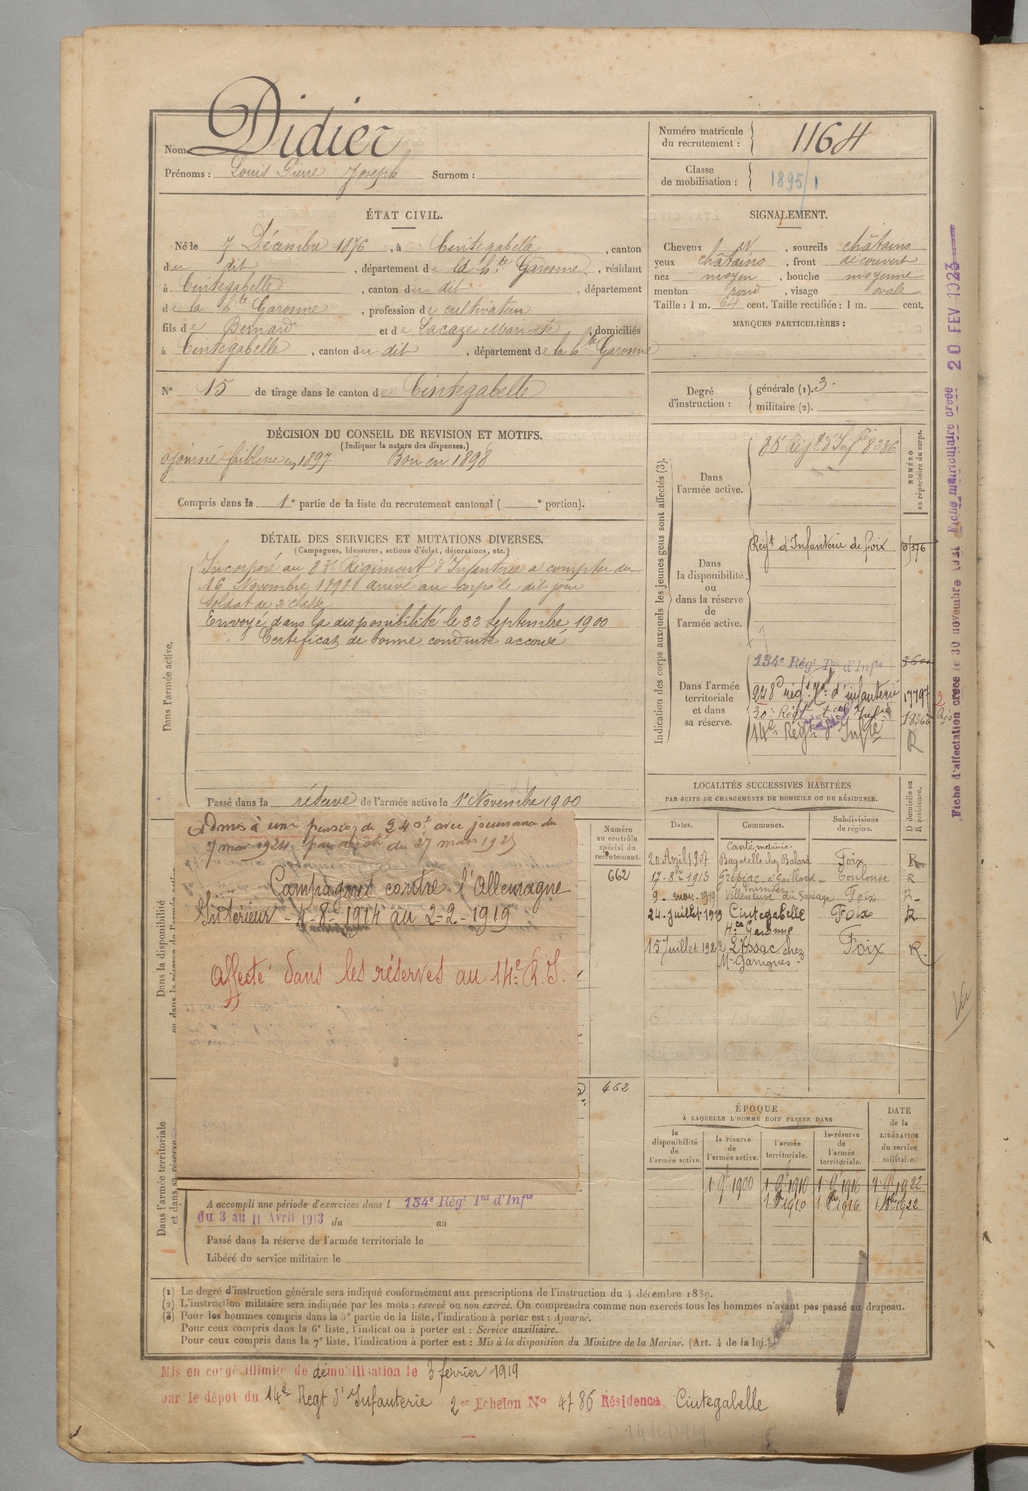 Nom Didier
Prénoms : Louis Pierre Joseph Surnom :
Numéro matricule
du recrutement : 1164
Classe
de mobilisation : 1895/1
ÉTAT CIVIL.
Né le 7 Décembre 1876, à Cintegabelle, canton
du dit, département de la Hte Garonne, résidant
à Cintegabelle, canton du dit, département
de la Hte Garonne, profession de cultivateur
fils de Bernard et de Lacaze Mariette, domiciliés
à Cintegabelle, canton du dit, département de la hte Garonne
N° 15 de tirage dans le canton de Cintegabelle
SIGNALEMENT.
Cheveux et, sourcils châtains
yeux châtains, front découvert
nez moyen, bouche moyenne
menton rond, visage ovale
Taille : 1 m. 64 cent. Taille rectifiée : 1 m. cent.
MARQUES PARTICULIÈRES :
Degré
d'instruction :
générale (1). 3
militaire (2).
DÉCISION DU CONSEIL DE REVISION ET MOTIFS.
(Indiquer la nature des dispenses.)
ajourné faiblesse en 1897 Bon en 1898
Compris dans la 1e partie de la liste du recrutement cantonal ( e portion).
DÉTAIL DES SERVICES ET MUTATIONS DIVERSES.
(Campagnes, blessures, actions d'éclat, décorations, etc.)
Dans l'armée active.
Incorporé au 83e Régiment d'Infanterie à compter du
16 Novembre 1898 arrivé au corps le dit jour
Soldat de 2e classe
Envoyé dans la disponibilité le 22 septembre 1900
Certificat de bonne conduite accordé
Passé dans la réserve de l'armée active le 1er Novembre 1900
Indication des corps auxquels les jeunes gens sont affectés (3).
NUMÉRO
au répertoire du corps.
Dans
l'armée active.
83e Régt d'Infie 8336
Dans
la disponibilité
ou
dans la réserve
de
l'armée active.
Régt d'Infanterie de Foix
Dans l'armée
territoriale
et dans
sa réserve.
134e Régt Tal d'Infie
248e rég. d'infanterie
14e Régt d'Infie R
LOCALITÉS SUCCESSIVES HABITÉES
PAR SUITE DE CHANGEMENTS DE DOMICILE OU DE RÉSIDENCE.
Dates. Communes. Subdivisions
de région. D domicile ou
R résidence.
20 Avril 1907 Foix R
17-8-1913 Toulouse R
9 mars 1919 Foix R
24 Juillet 1919 Cintegabelle Foix R
Hte Garonne
15 Juillet 1922 Lissac chez Foix R
Mr Garrigues
Numéro
au contrôle
spécial du
recrutement.
662
462
Dans la disponibilité
ou dans la réserve de l'armée active
Admis à une pension de 240f avec jouissance du
7 mars 1924 par arrêté du 27 mars 1925
Campagnes contre l'Allemagne
Intérieur - 4-8-1914 au 2-2-1919
Affecté dans les réserves au 14e R.I.
ÉPOQUE
À LAQUELLE L'HOMME DOIT PASSER DANS
la
disponibilité
de
l'armée active.
la réserve
de
l'armée active.
l'armée
territoriale.
la réserve
de
l'armée
territoriale.
DATE
de la
LIBÉRATION
du service
militaire.
1 9bre 1900 1 9bre 1910 1 9bre 1916 1 9bre 1922
1 9bre 1910 1 9bre 1916 1 9bre 1922
Dans l'armée territoriale
et dans sa réserve
A accompli une période d'exercices dans l 134e Régt Tal d'Infie
du 3 au 11 Avril 1913 du au
Passé dans la réserve de l'armée territoriale le
Libéré du service militaire le
(1) Le degré d'instruction générale sera indiqué conformément aux prescriptions de l'instruction du 4 décembre 1889.
(2) L'instruction militaire sera indiquée par les mots : exercé ou non exercé. On comprendra comme non exercés tous les hommes n'ayant pas passé au drapeau.
(3) Pour les hommes compris dans la 5e partie de la liste, l'indication à porter est : Ajourné.
Pour ceux compris dans la 6e liste, l'indication à porter est : Service auxiliaire.
Pour ceux compris dans la 7e liste, l'indication à porter est : Mis à la disposition du Ministre de la Marine. (Art. 4 de la loi.)
Mis en congé illimité de démobilisation le 3 février 1919
par le dépôt du 14e Régt d'Infanterie 2er Echelon N° 4786 Résidence Cintegabelle
Fiche d'affectation créée le 30 novembre Fiche matriculaire créée 20 FEV 1923